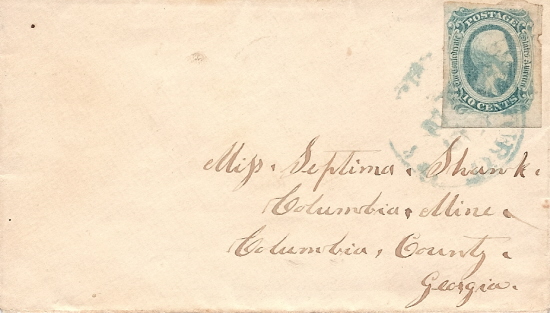 POSTAGE
The Confederate States America
10 CENTS
Miss. Septima. Shank.
Columbia. Mine.
Columbia, County.
Georgia.